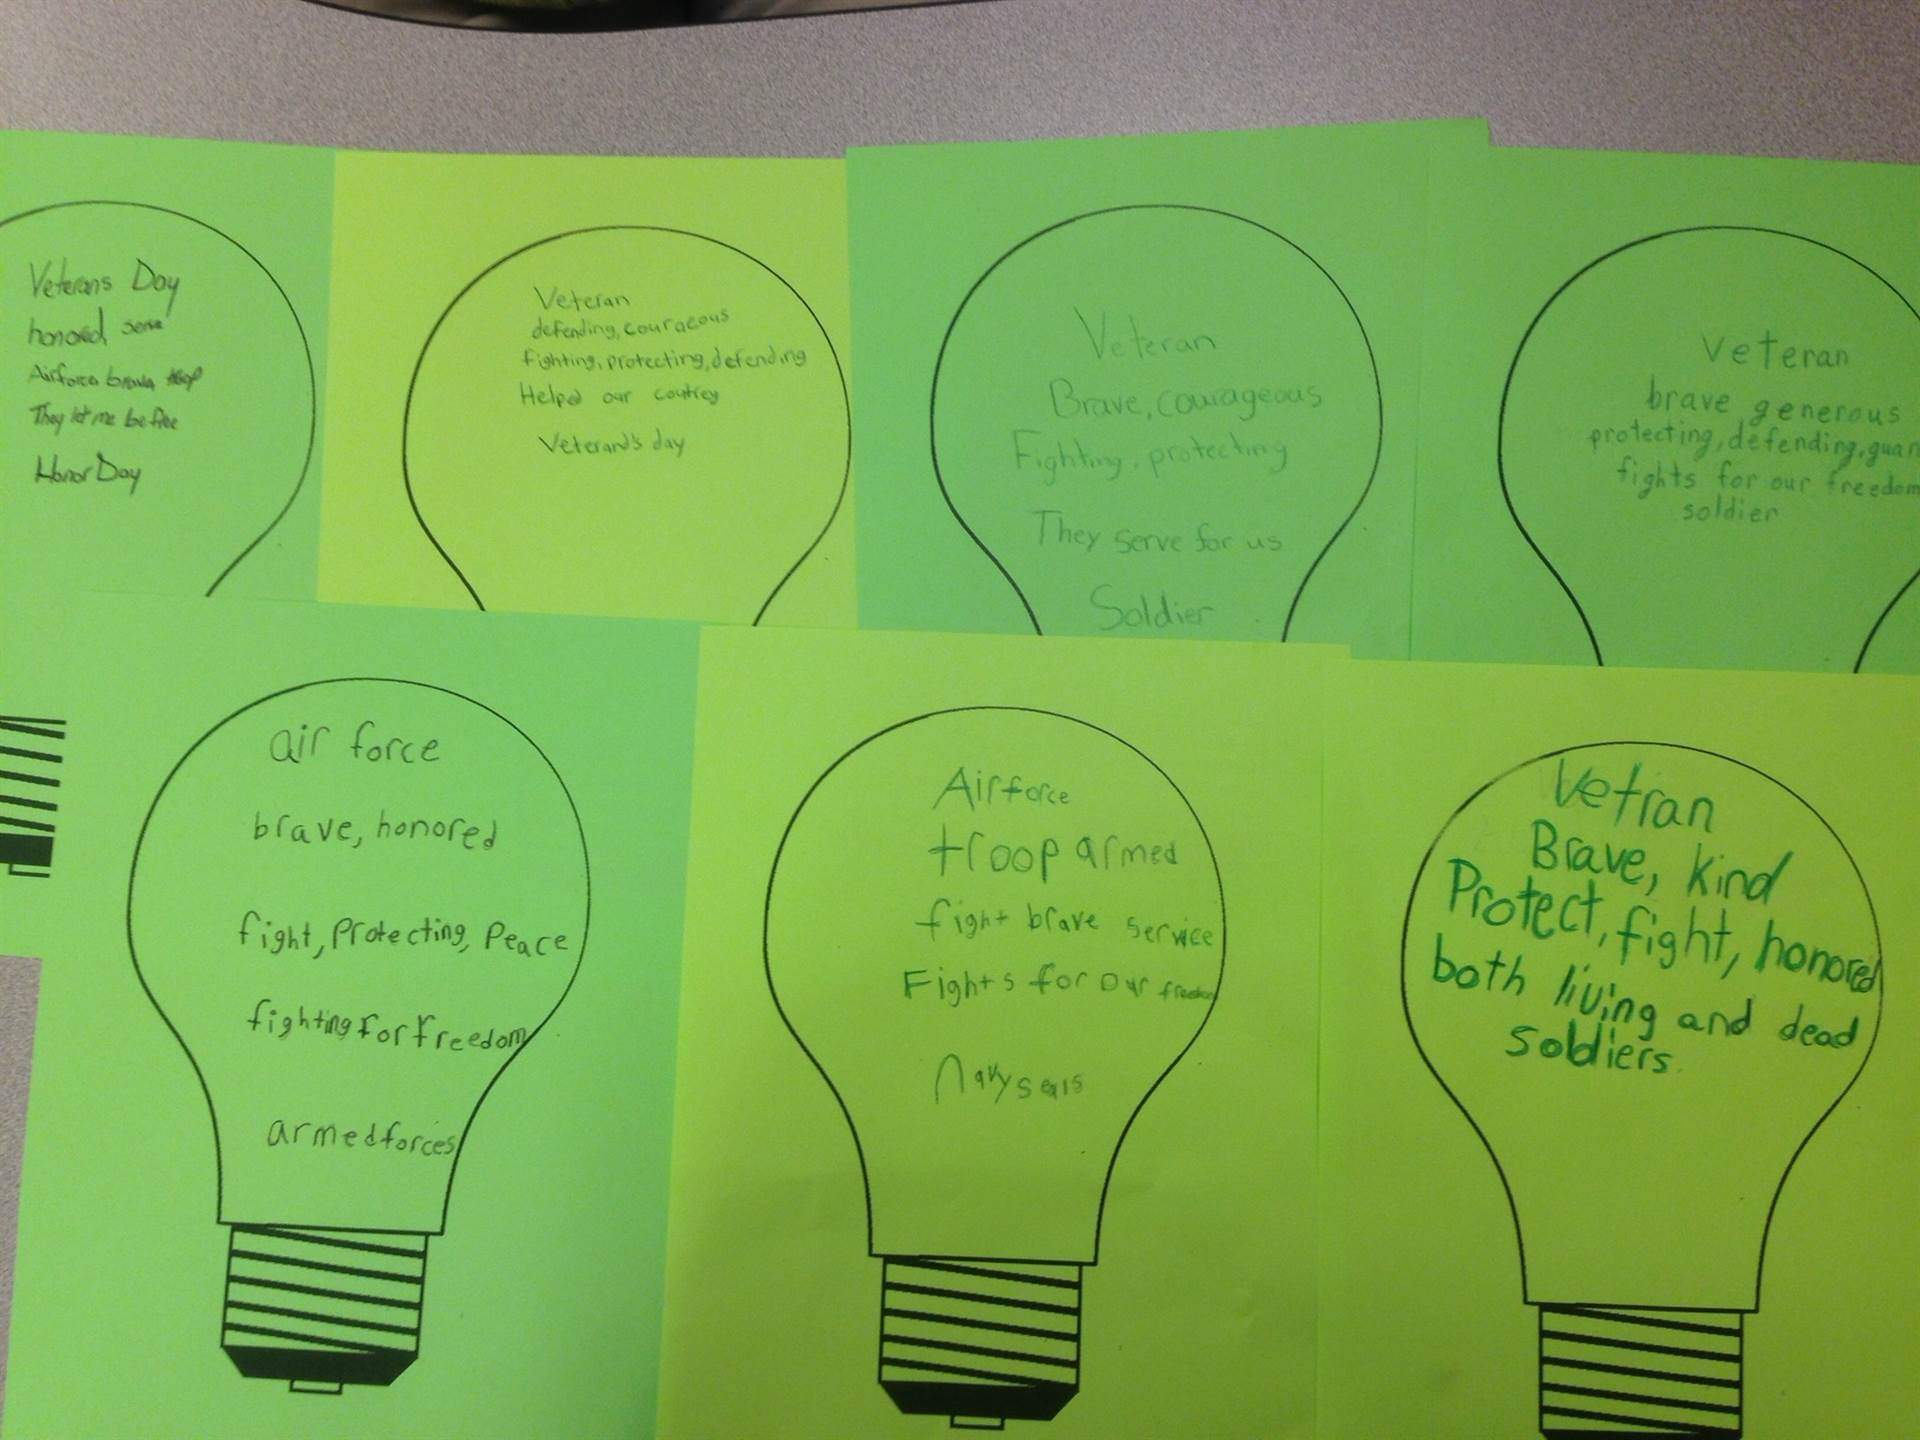 Veterans Day
honored serve
Airforce brave troop
They let me be free
Honor Day
Veteran
defending, couraeous
fighting, protecting, defending
Helped our coutrey
Veterand's day
Veteran
Brave, courageous
Fighting, protecting
They serve for us
Soldier
Veteran
brave generous
protecting, defending, guar
fights for our freedom
soldier
air force
brave, honored
fight, Protecting, Peace
fighting for freedom
armed forces
Airforce
troop armed
fight brave service
Fights for our freedom
Navy seals
Vetran
Brave, kind
Protect, fight, honored
both living and dead
soldiers.